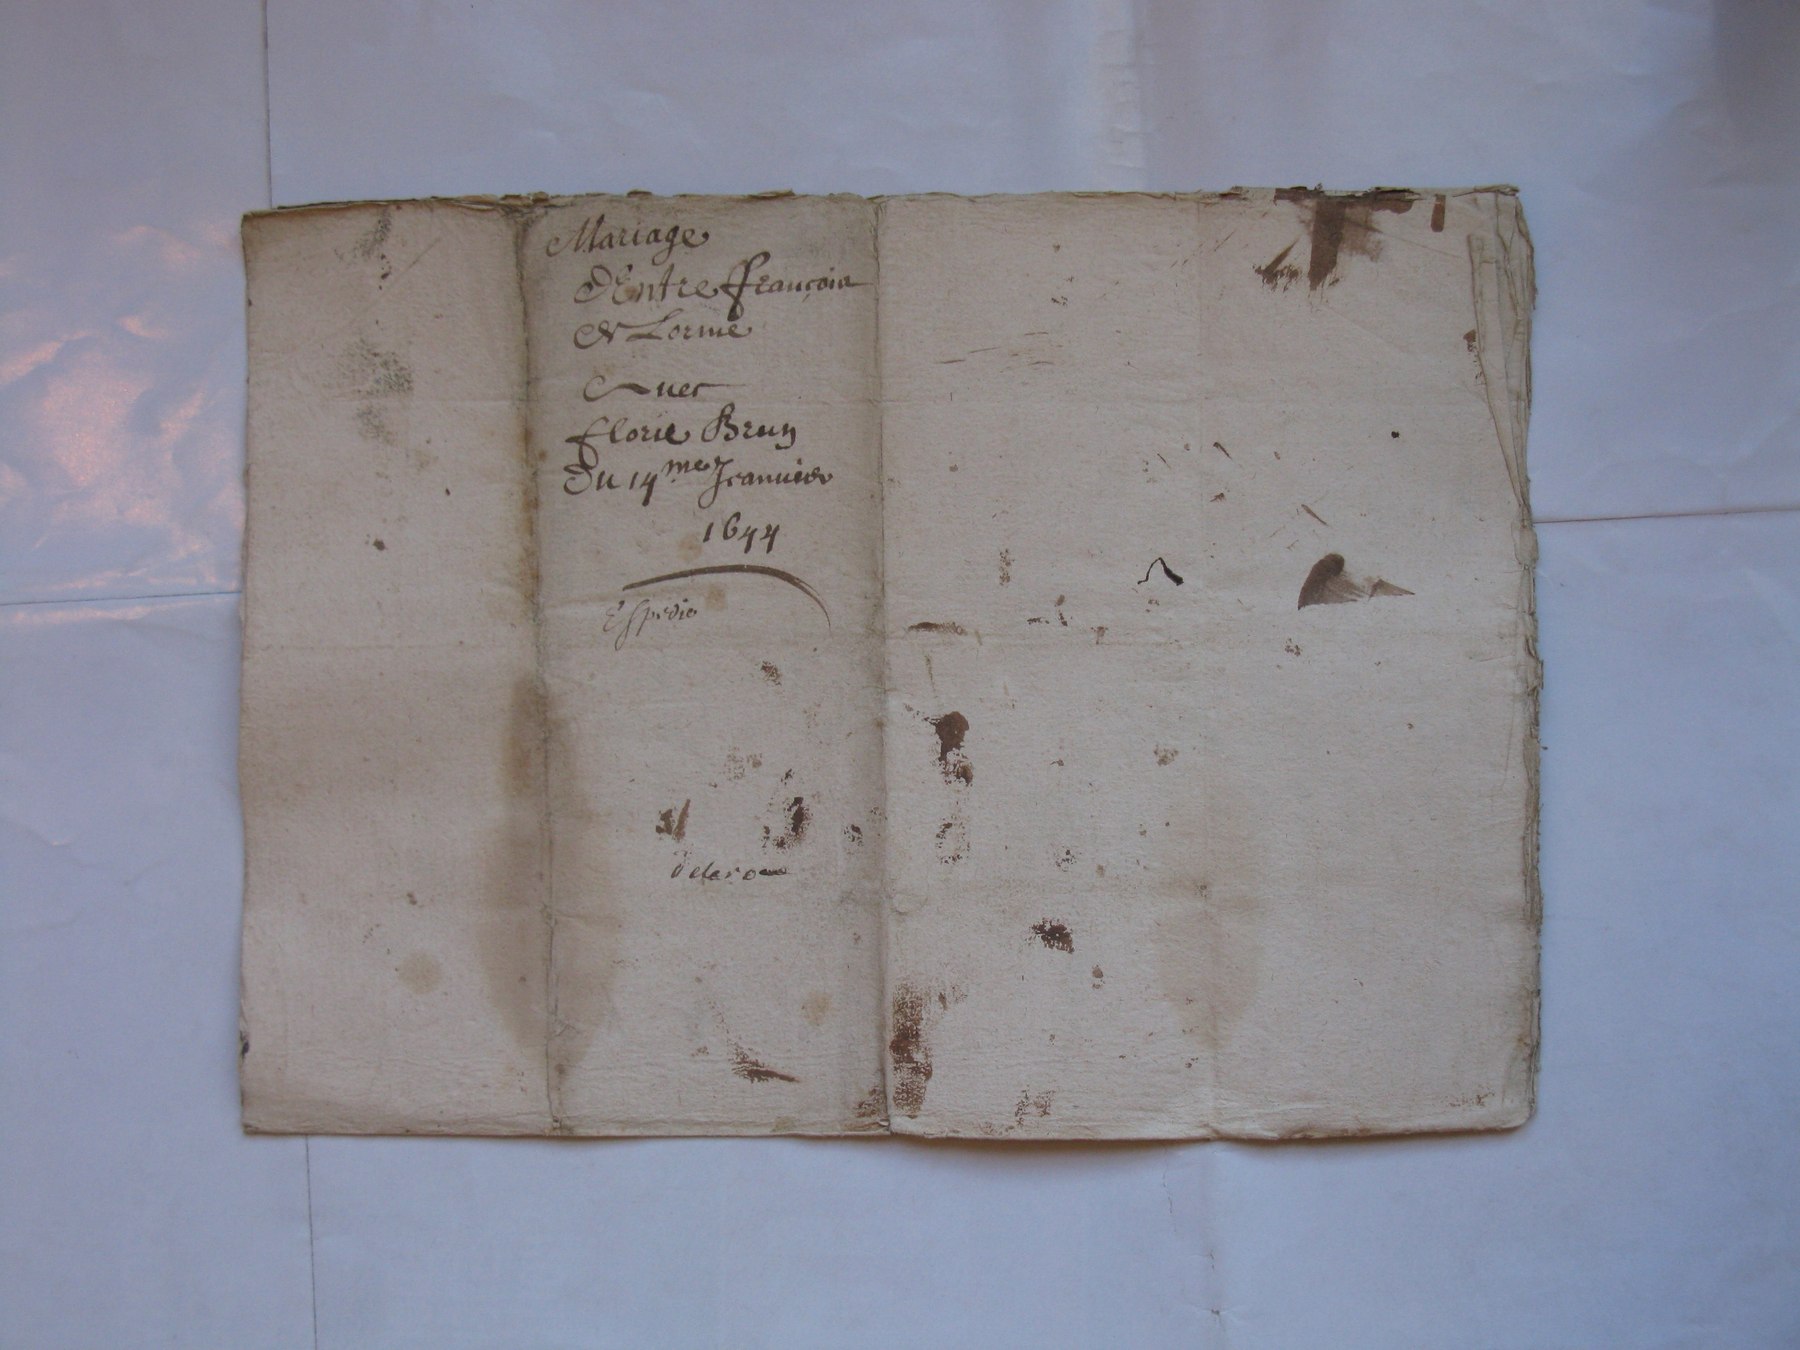 Mariage
d'Entre françois
de Lorme
Auec
florie Brun
du 14me Jeanuier
1644
Espedie